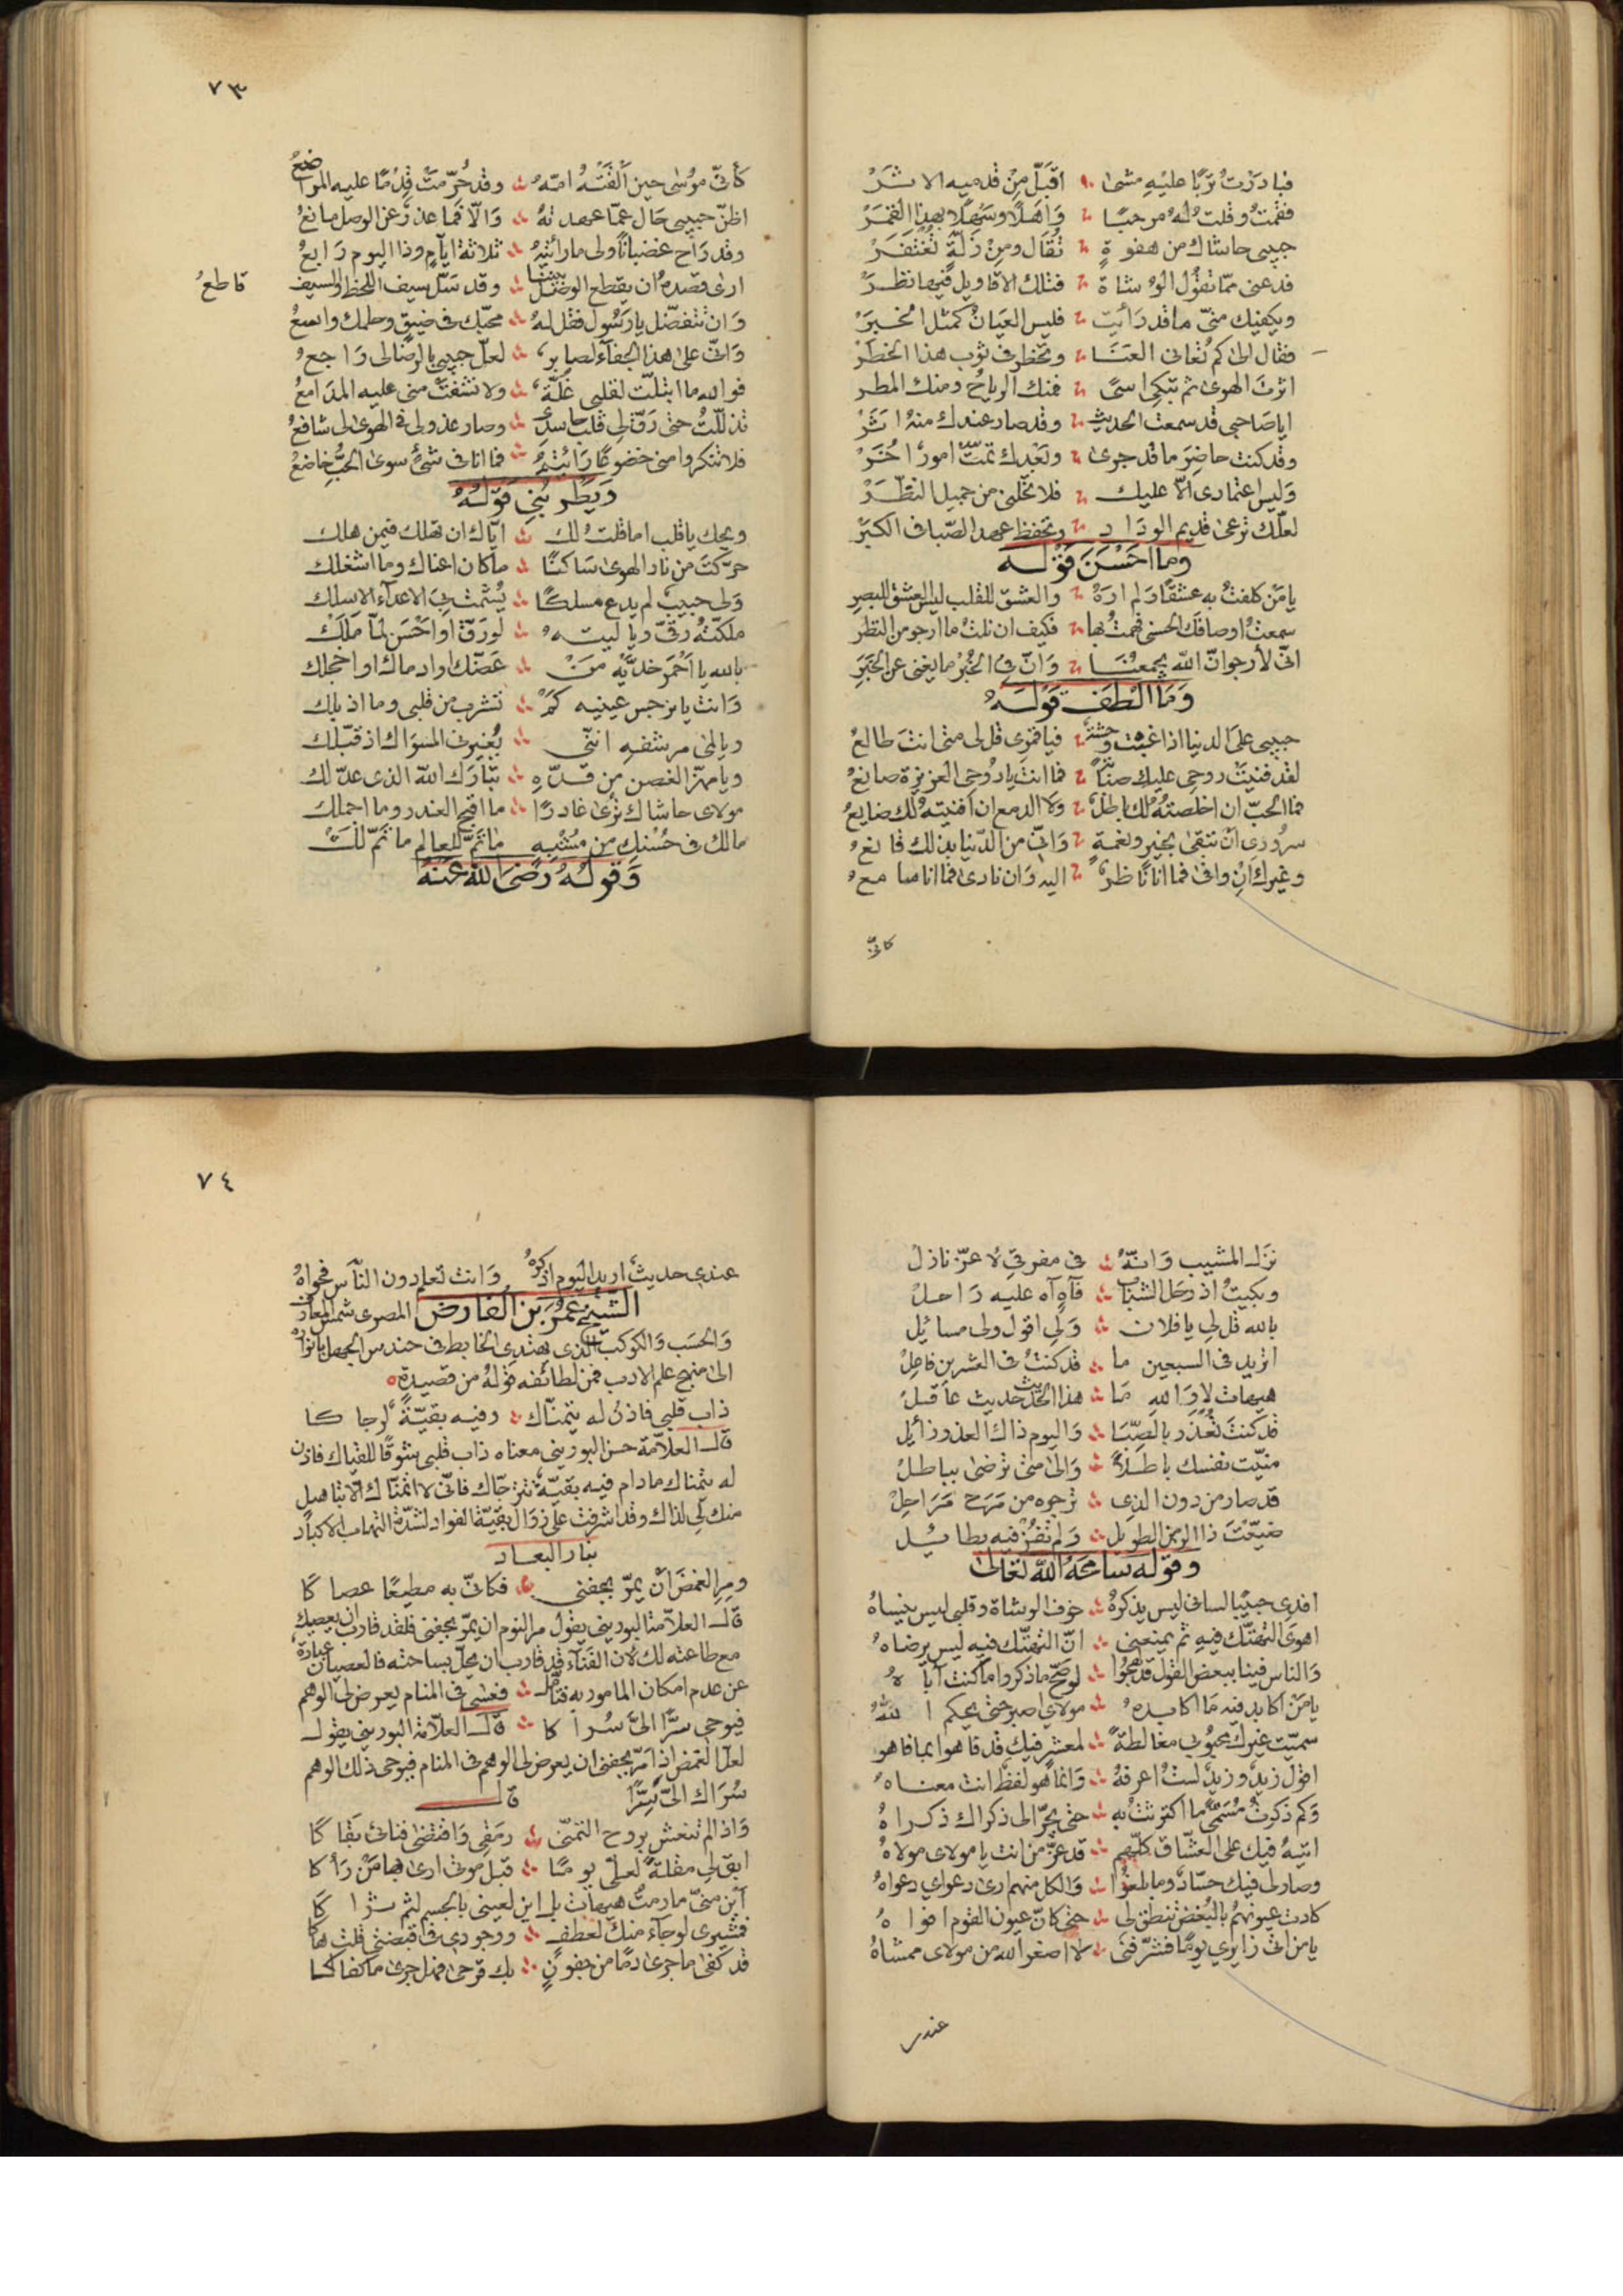 فبادرت تربًا عليه مشى ؞ اقبّل من قدميه الاثر
فقمت وقلت له مرحبًا ؞ واهلًا وسهلًا بهذا القمر
حبيبى حاشاك من هفوةٍ ؞ تقال ومن زلةٍ تغتفر
فدعنى ممّا تقول الوشاة ؞ فتلك الاقاويل فيها نظر
ويكفيك منّى ما قد رأيت ؞ فليس العيان كمثل الخبر
فقال الى كم تعانى العنا ؞ وتخطر فى ثوب هذا الخطر
اثرت الهوى ثم تبكى اسىً ؞ فمنك الرياح ومنك المطر
ايا صاحبى قد سمعت الحديث ؞ وقد صار عندك منه اثر
وقد كنت حاضر ما قد جرى ؞ وبعدك تمّت امور اخر
وليس اعتمادى الّا عليك ؞ فلا تخلنى من جميل النظر
لعلّك ترعى قديم الوداد ؞ وتحفظ عهد الصبا فى الكبر
وما احسن قوله
يا من كلفت به عشقًا ولم اره ؞ والعشق للقلب ليس العشق للبصر
سمعت اوصافك الحسنى فهمت بها ؞ فكيف ان نلت ما ارجو من النظر
انّى لأرجو انّ الله يجمعنا ؞ وانّ فى الخُبر ما يغنى عن الخبر
وما الطف قوله
حبيبى على الدنيا اذا غبت وحشة ؞ فيا قمرى قل لى متى انت طالع
لقد فنيت روحى عليك صبابةً ؞ فما انت يا روحى العزيزة صانع
فما الحبّ ان اخلصته لك باطل ؞ ولا الدمع ان افنيته لك ضايع
سرورى ان تبقى بخير ونعمةٍ ؞ وانّى من الدنيا بذلك قانع
وغيرك ان وافى فما انا ناظر ؞ اليه وان نادى فما انا سامع
كانّى
٧٣
كأنّى موسى حين ألقته امّه ؞ وقد حرّمت قدمًا عليه المراضع
اظنّ حبيبى حال عمّا عهدته ؞ والّا فما عذر عن الوصل مانع
وقد راح غضبانًا ولى ما رأيته ؞ ثلاثة ايام وذا اليوم رابع
ارى قصده ان يقطع الوصل بيننا ؞ وقد سلّ سيف اللحظ والسيف قاطع
وان تتفضّل يا رسول فقل له ؞ محبّك فى ضيق وحلمك واسع
وانّى على هذا الجفاء لصابر ؞ لعلّ حبيبى بالرضا لى راجع
فوالله ما ابتلّت لقلبى غلّة ؞ ولا نشفت منى عليه المدامع
تذللّت حتى رقّ لى قلب حاسدى ؞ وصار عذولى فى الهوى لى شافع
فلا تنكروا منى خضوعًا رأيتم ؞ فما انا فى شئ سوى الحبّ خاضع
ويطربنى قوله
ويحك يا قلب اما قلت لك ؞ ايّاك ان تهلك فيمن هلك
حرّكت من نار الهوى ساكنًا ؞ ما كان اغناك وما اشغلك
ولى حبيب لم يدع مسلكًا ؞ يشمت بى الاعداء الا سلك
ملكته رقّى ويا ليته ؞ لو رقّ او احسن لمّا ملك
بالله يا احمر خدّيه من ؞ عضّك او ادماك او اخجلك
وانت يا نرجس عينيه كم ؞ تشرب من قلبى وما اذبلك
ويا لمى مرشفه اننى ؞ يغيرنى المسواك اذ قبّلك
ويا مهزّ الغصن من قدّه ؞ تبارك الله الذى عدّلك
مولاى حاشاك ترى غادرًا ؞ ما اقبح الغدر وما اجملك
مالك فى حسنك من مشبه ؞ ما تمّ للعالم ما تمّ لك
وقوله رضى الله عنه
نزل المشيب وانّه ؞ فى مفرقى لاعزّ نازل
وبكيت اذ رحل الشباب ؞ فآه آه عليه راحل
بالله قل لى يا فلان ؞ ولى اقول ولى مسائل
اتريد فى السبعين ما ؞ قد كنت فى العشرين فاعل
هيهات لا والله ما ؞ هذا الحديث حديث عاقل
قد كنت تعذر بالصبا ؞ واليوم ذاك العذر زايل
منّيت نفسك باطلًا ؞ والى متى ترضى بباطل
قد صار من دون الذى ؞ ترجوه من مرح مراحل
ضيّعت ذا الزمن الطويل ؞ ولم تفز فيه بطائل
وقوله سامحه الله تعالى
افدى حبيبًا لسانى ليس يذكره ؞ خوف الوشاة وقلبى ليس ينساه
اهوى التهتّك فيه ثم يمنعنى ؞ انّ التهتّك فيه ليس يرضاه
والناس فينا ببعض القول قد لهجوا ؞ لو صحّ ما ذكروا ما كنت آباه
يا من اكابد فيه ما اكابده ؞ مولاى اصبر حتى يحكم الله
سمّيت غيرك محبوبى مغالطةً ؞ لمعشر فيك قد فاهوا بما فاهوا
اقول زيد وزيد لست اعرفه ؞ وانما هو لفظ انت معناه
وكم ذكرت مسمّى ما اكترثت به ؞ حتى يجرّ الى ذكراك ذكراه
اتيه فيك على العشّاق كلّهم ؞ قد عزّ من انت يا مولاى مولاه
وصار لى فيك حسّاد وما بلغوا ؞ والكل منهم ارى دعواى دعواه
كادت عيونهم بالبغض تنطق لى ؞ حتى كانّ عيون القوم افواه
يا من اتى زايرى يومًا فشرّفنى ؞ لا اصغر الله من مولاى ممشاه
عندى
٧٤
عندى حديث اريد اليوم اذكره ؞ وانت تعلم دون الناس فحواه
الشيخ عمر بن الفارض المصرى شمس المعارف
والحسب والكوكب الذى يهتدى الخابط فى حندس الجهل بانواره
الى منهج علم الادب فمن لطائفه قوله من قصيدة
ذاب قلبى فاذن له يتمنّاك ؞ وفيه بقيّة لرجاكا
قال العلامة حسن البورينى معناه ذاب قلبى شوقًا للقياك فاذن
له يتمناك ما دام فيه بقيّة تترجّاك فانّى لا اتمنّاك الا بتاهيل
منك لى لذاك وقد اشرفت على زوال بقيّة الفواد لشدّة التهاب الاكباد
بنار البعاد
ومر الغمض ان يمرّ بجفنى ؞ فكانّى به مطيعًا عصاكا
قال العلامة البورينى يقول مر النوم ان يمرّ بجفنى فلقد قارب ان يعصيك
مع طاعته لك لان الفناء قد قارب ان يحلّ بساحته فالعصيان عبارة
عن عدم امكان المامور به قال ؞ فعسى فى المنام يعرض لى الوهم
فيوحى سرًّا الىّ سراكا ؞ قال العلامة البورينى يقول
لعل الغمض اذا مرّ بجفنى ان يعرض لى الوهم فى المنام فيوحى ذلك الوهم
سراك الىّ سرًّا قال
واذا لم تنعش بروح التمنّى ؞ رمقى واقتضى فنائى بقاكا
ابق لى مقلة لعلّى يومًا ؞ قبل موتى ارى بها من رآكا
اين منّى ما رمت هيهات بل اين لعينى بالجسم لثم ثراكا
فبشيرى لو جاء منك بعطف ؞ ووجودى فى قبضتى قلت هاكا
قد كفى ما جرى دمًا من جفون ؞ بك قرحى فهل جرى ما كفاكا